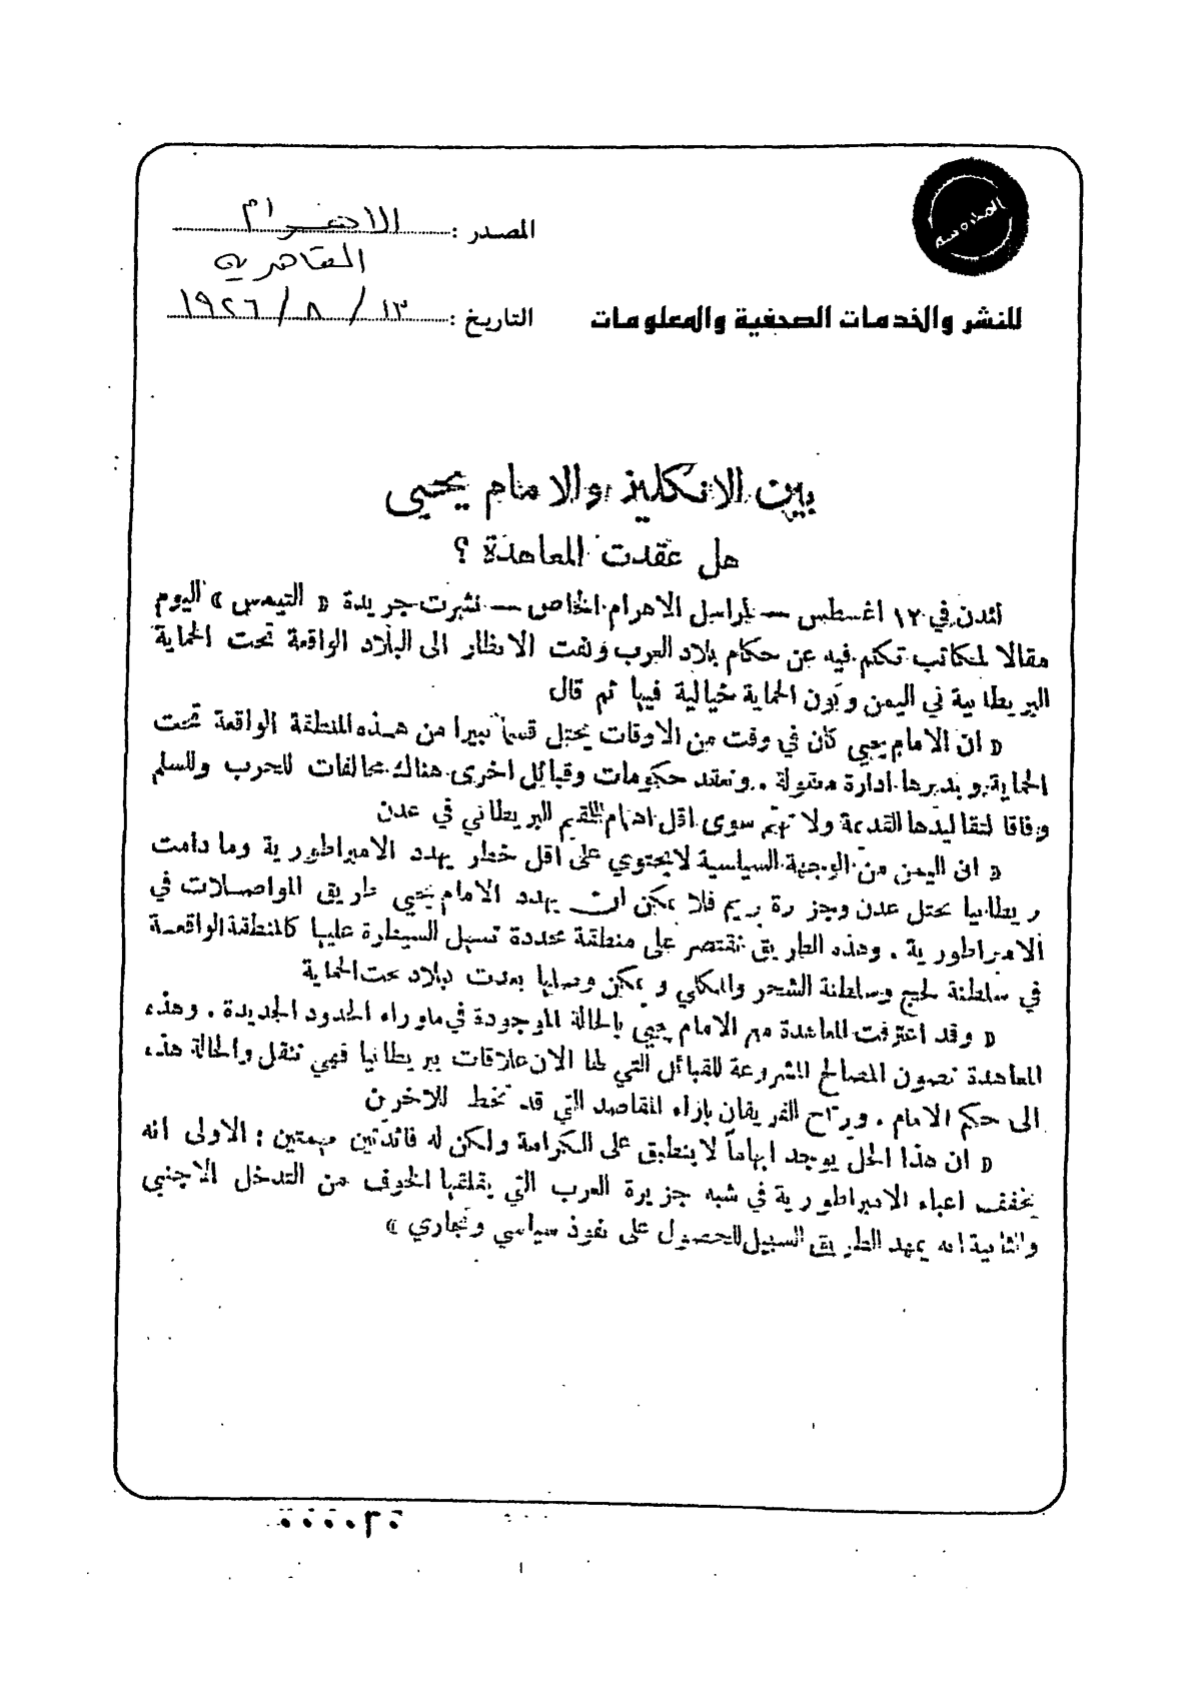 المحروسة
المصدر : الاهرام
القاهرية
للنشر والخدمات الصحفية والمعلومات
التاريخ : ١٣ / ٨ / ١٩٢٦
بين الانكليز والامام يحيى
هل عقدت المعاهدة ؟
لندن في ١٢ اغسطس — لمراسل الاهرام الخاص — نشرت جريدة « التيمس » اليوم
مقالا لمكاتب تكلم فيه عن حكام بلاد العرب ولفت الانظار الى البلاد الواقعة تحت الحماية
البريطانية في اليمن وكون الحماية خيالية فيها ثم قال
« ان الامام يحيى كان في وقت من الاوقات يحتل قسما كبيرا من هذه المنطقة الواقعة تحت
الحماية ويديرها ادارة معقولة . وتعقد حكومات وقبائل اخرى هناك محالفات للحرب وللسلم
وفاقا لتقاليدها القديمة ولا تهتم سوى اقل اهتمام للمقيم البريطاني في عدن
« ان اليمن من الوجهة السياسية لا يحتوي على اقل خطر يهدد الامبراطورية وما دامت
بريطانيا تحتل عدن وجزيرة بريم فلا يمكن ان يهدد الامام يحيى طريق المواصلات في
الامبراطورية . وهذه الطريق تقتصر على منطقة محددة تسهل السيطرة عليها كالمنطقة الواقعة
في سلطنة لحج وسلطنة الشحر والمكلي ويمكن وصلها بعدت ببلاد تحت الحماية
« وقد اعترفت المعاهدة مع الامام يحيى بالحالة الموجودة في ما وراء الحدود الجديدة . وهذه
المعاهدة تصون المصالح المشروعة للقبائل التي لها الان علاقات ببريطانيا فهي تنقل والحالة هذه
الى حكم الامام . ويرتاح الفريقان بازاء المقاصد التي قد تخطر للاخرين
« ان هذا الحل يوجد ابهاماً لا ينطبق على الكرامة ولكن له فائدتين مهمتين : الاولى انه
يخفف اعباء الامبراطورية في شبه جزيرة العرب التي يقلقها الخوف من التدخل الاجنبي
والثانية انه يمهد الطريق السبيل للحصول على نفوذ سياسي وتجاري »